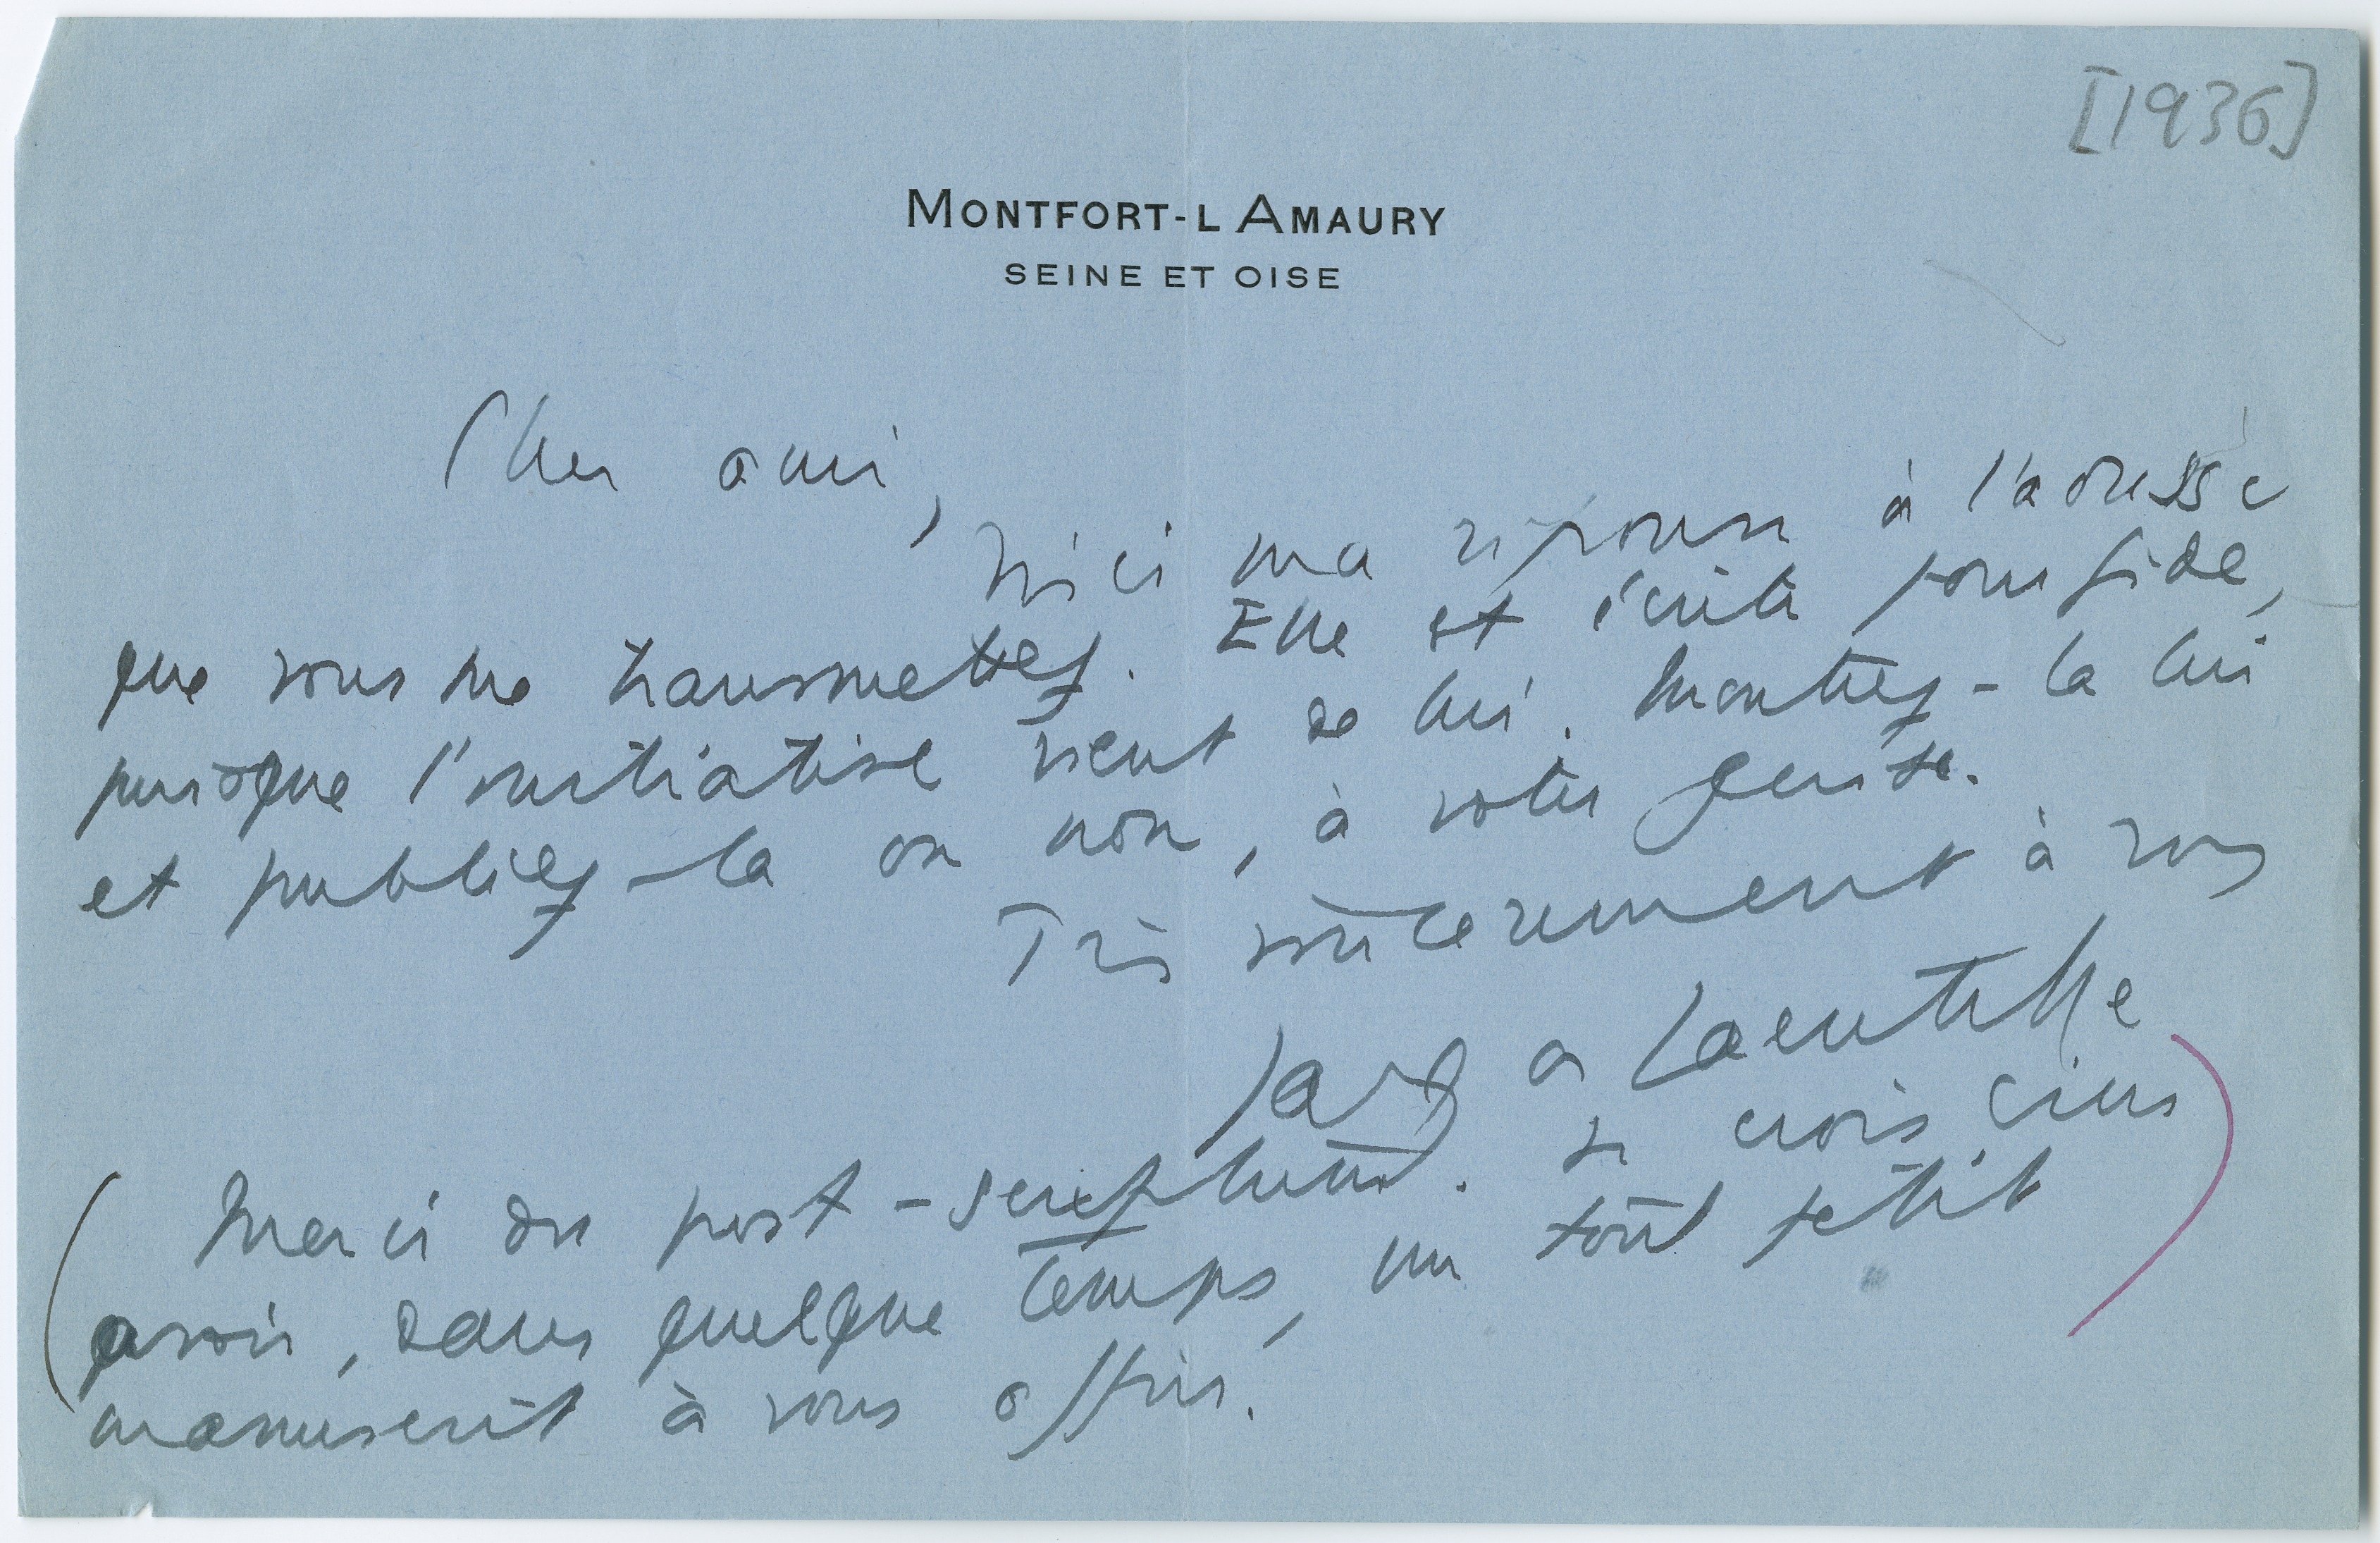 [1936]
MONTFORT-L AMAURY
SEINE ET OISE
Cher ami,
Voici ma réponse à l'adresse
que vous me transmettez. Elle est écrite pour Gide,
puisque l'initiative vient de lui. Montrez-la lui
et publiez-la ou non, à votre guise.
Très sincèrement à vous
Lacretelle
(Merci du post-scriptum. Je crois
avoir, dans quelque temps, un tout petit
manuscrit à vous offrir.)